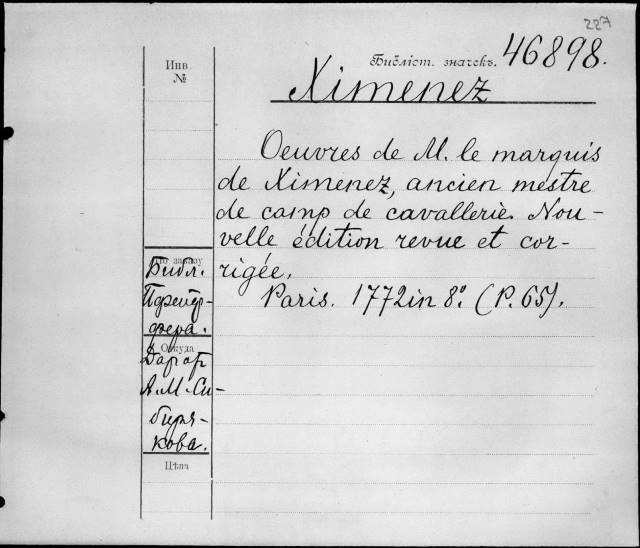 227
Инв. №
Библіот. значекъ. 46898.
Ximenez
Oeuvres de M. le marquis
de Ximenez, ancien mestre
de camp de cavallerie. Nou-
velle édition revue et cor-
rigée.
Paris. 1772 in 8º. (P. 65).
По заказу
Библ.
Пфейф-
фера.
Откуда
Дар от
А. М. Си-
биря-
кова.
Цѣна